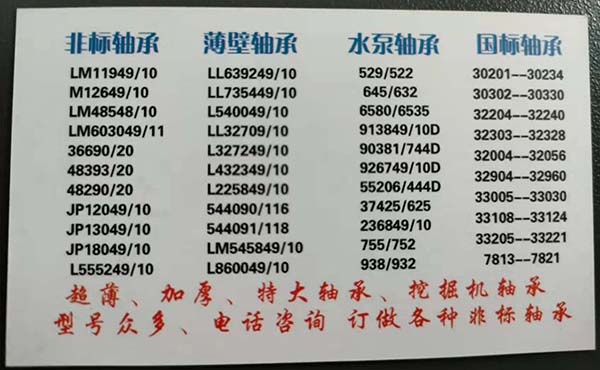 非标轴承 薄壁轴承 水泵轴承 国标轴承
LM11949/10 LL639249/10 529/522 30201--30234
M12649/10 LL735449/10 645/632 30302--30330
LM48548/10 L540049/10 6580/6535 32204--32240
LM603049/11 LL32709/10 913849/10D 32303--32328
36690/20 L327249/10 90381/744D 32004--32056
48393/20 L432349/10 926749/10D 32904--32960
48290/20 L225849/10 55206/444D 33005--33030
JP12049/10 544090/116 37425/625 33108--33124
JP13049/10 544091/118 236849/10 33205--33221
JP18049/10 LM545849/10 755/752 7813--7821
L555249/10 L860049/10 938/932
超薄、加厚、特大轴承、挖掘机轴承
型号众多、电话咨询 订做各种非标轴承